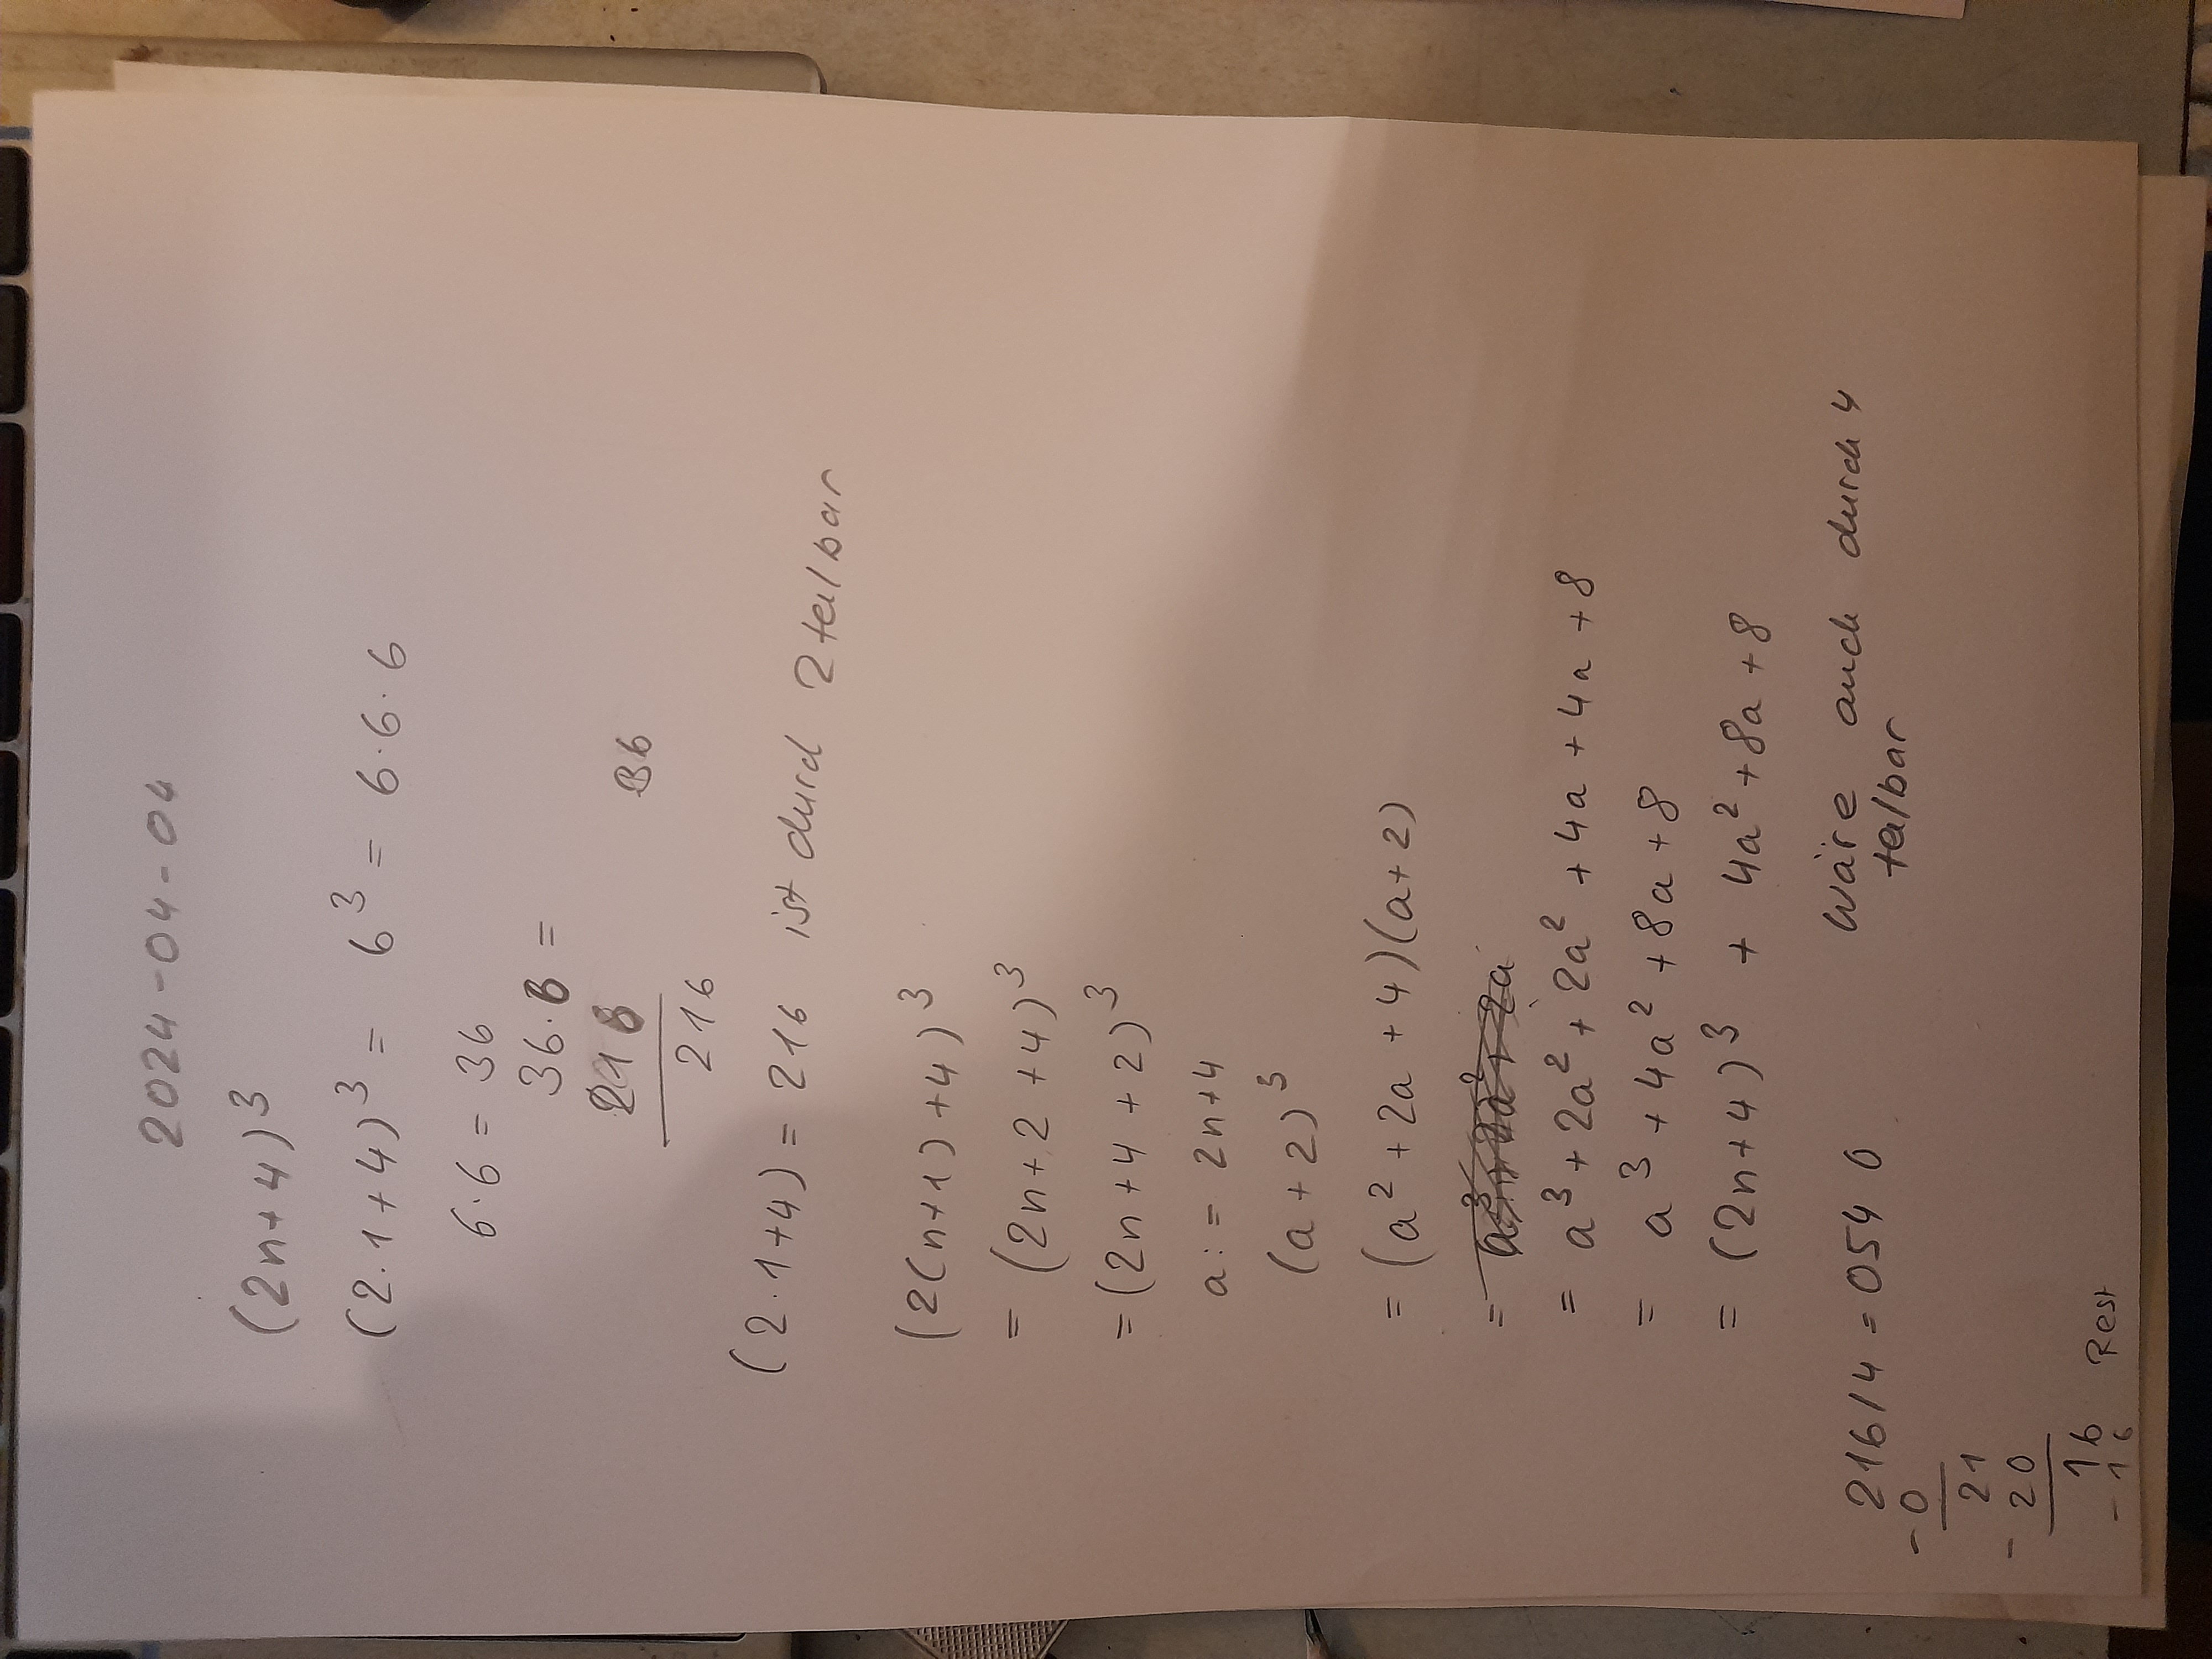 2024-04-04
(2n+4)³
(2·1+4)³ = 6³ = 6·6·6
6·6 = 36
36·6 =
216
36
216
(2·1+4) = 216 ist durch 2 teilbar
(2(n+1)+4)³
= (2n+2+4)³
= (2n+4+2)³
a := 2n+4
(a+2)³
= (a²+2a+4)(a+2)
=
= a³+2a²+2a²+4a+4a+8
= a³+4a²+8a+8
= (2n+4)³ + 4a²+8a+8
216/4 = 054 0 wäre auch durch 4
teilbar
-0
21
-20
16
-16 Rest